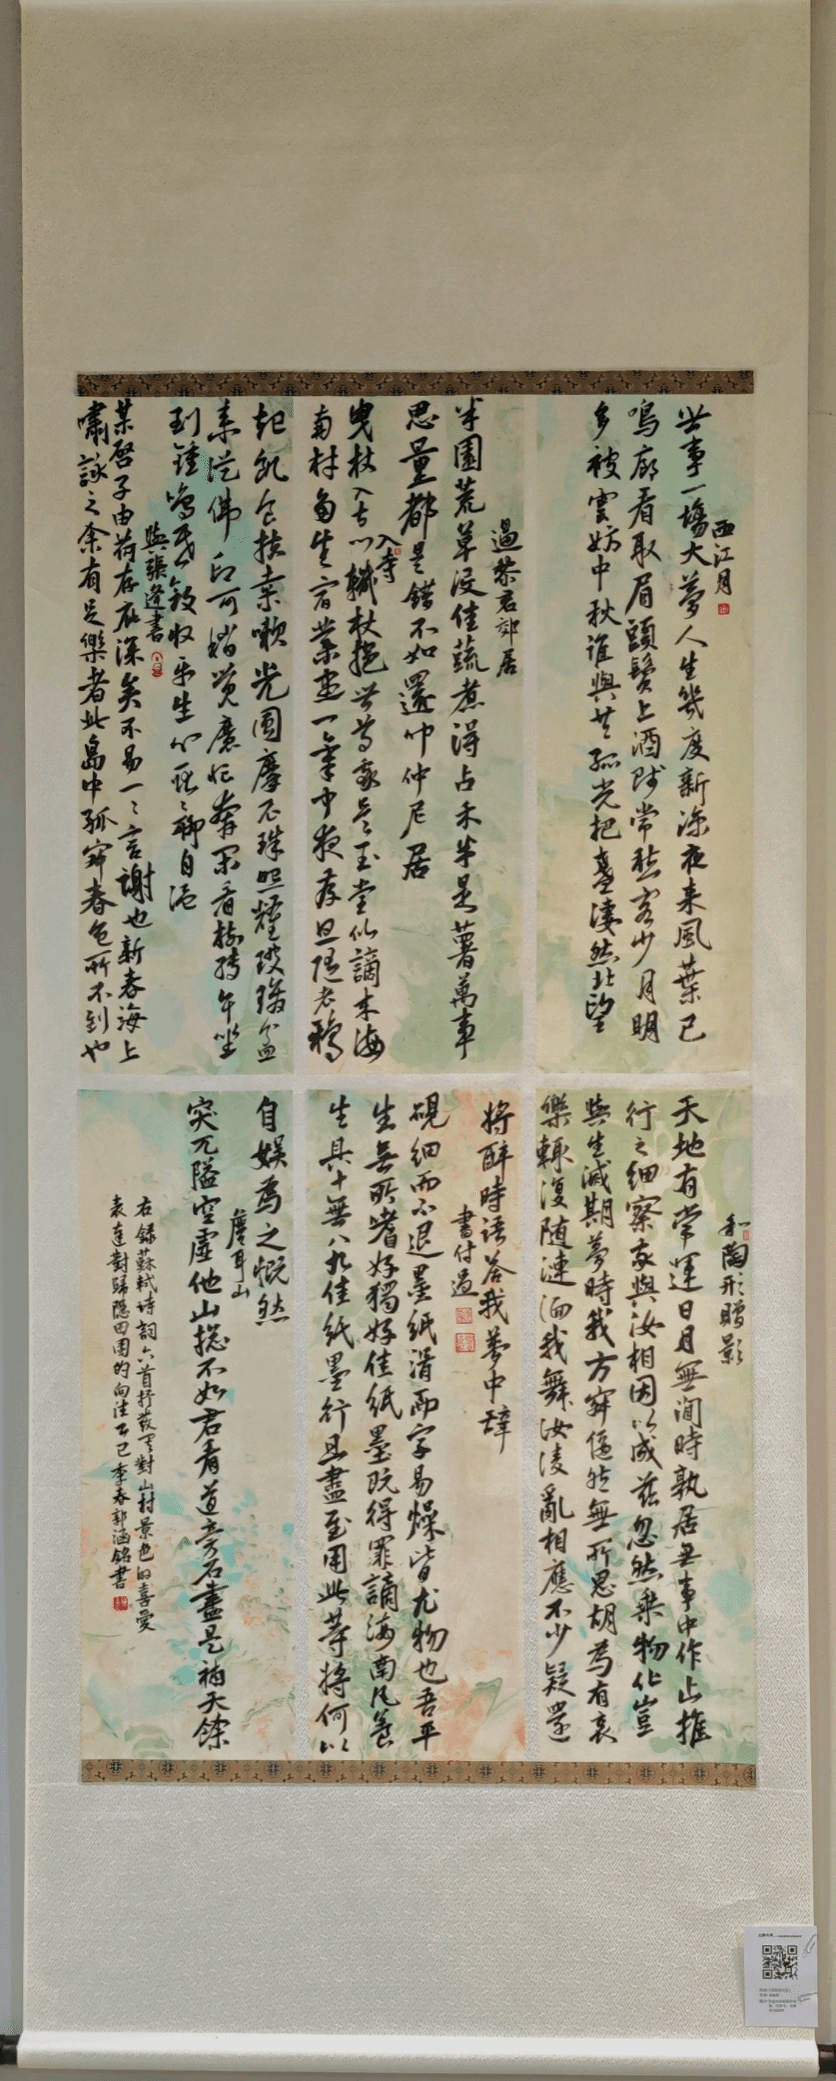 西江月
世事一場大夢人生幾度新涼夜來風葉已
鳴廊看取眉頭鬢上酒賤常愁客少月明
多被雲妨中秋誰與共孤光把盞淒然北望
過黎君郊居
半園荒草沒佳蔬煮得占禾半是薯萬事
思量都是錯不如還叩仲尼居
入寺
曳杖入寺門輯杖挹世尊我是玉堂仙謫來海
南村多生宿業盡一氣中夜存旦隨老鴉
起飢食扶桑暾光圓摩尼珠照耀玻璃盆
來從佛印可稍覺魔忙奔閑看樹轉午坐
到鍾鳴昏斂收平生心耿耿聊自溫
與張逢書
某啓子由荷存庇深矣不易一一言謝也新春海上
嘯詠之余有足樂者此島中孤寂春色所不到也
和陶形贈影
天地有常運日月無閑時孰居無事中作止推
行之細察我與汝相因以成茲忽然乘物化豈
與生滅期夢時我方寂偃然無所思胡為有哀
樂輒復隨漣洏我舞汝凌亂相應不少疑還
將醉時語答我夢中辭
書付過
硯細而不退墨紙滑而字易燥皆尤物也吾平
生無所嗜好獨好佳紙墨既得罪謫海南凡養
生具十無八九佳紙墨行且盡至用此等將何以
自娛為之慨然
儋耳山
突兀隘空虛他山總不如君看道旁石盡是補天餘
右録蘇軾詩詞六首抒發了對山村景色的喜愛
表達對歸隱田園的向往乙巳季春郭涵銘書